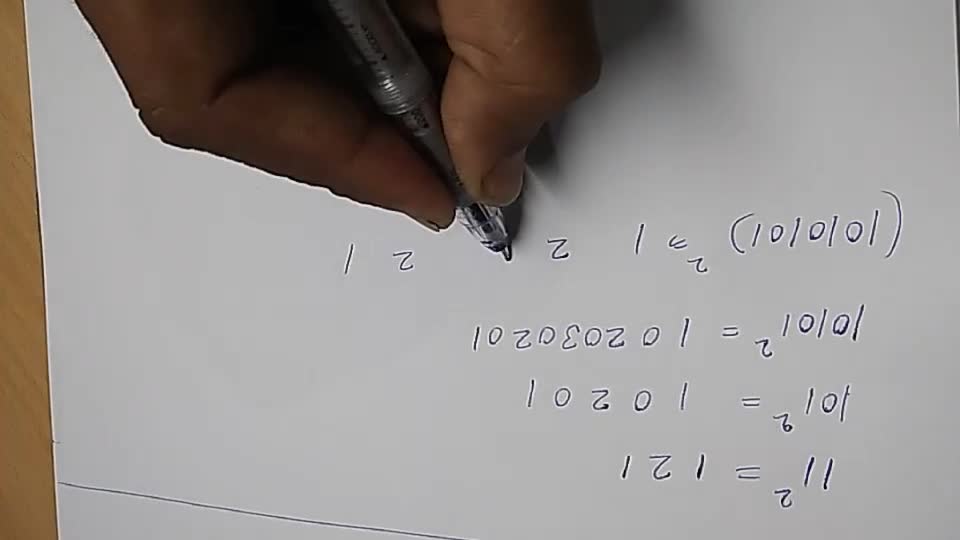 11² = 121
101² = 10201
10101² = 102030201
(1010101)² = 1 2 2 1